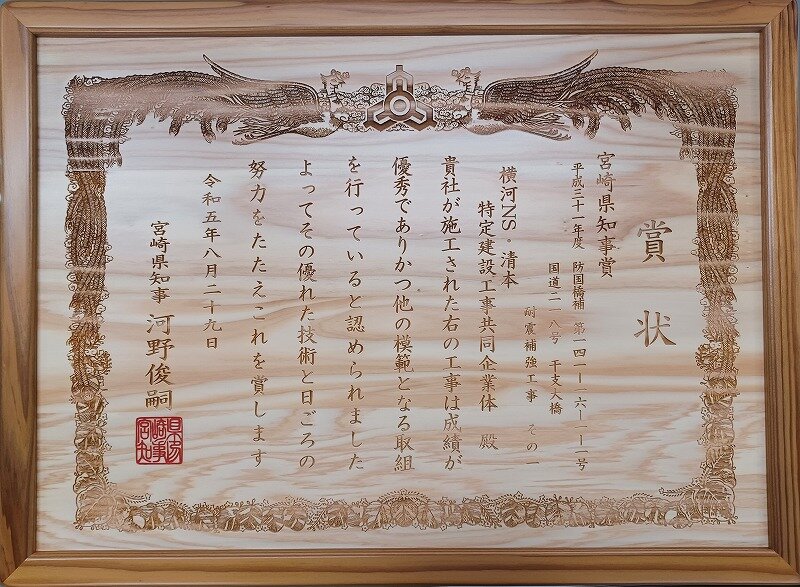 賞状
宮崎県知事賞
平成三十一年度 防国橋補 第一四一ー一六ー一ー一号
国道二一八号 干支大橋
耐震補強工事 その一
横河NS・清本
特定建設工事共同企業体 殿
貴社が施工された右の工事は成績が
優秀でありかつ他の模範となる取組
を行っていると認められました
よってその優れた技術と日ごろの
努力をたたえこれを賞します
令和五年八月二十九日
宮崎県知事 河野俊嗣